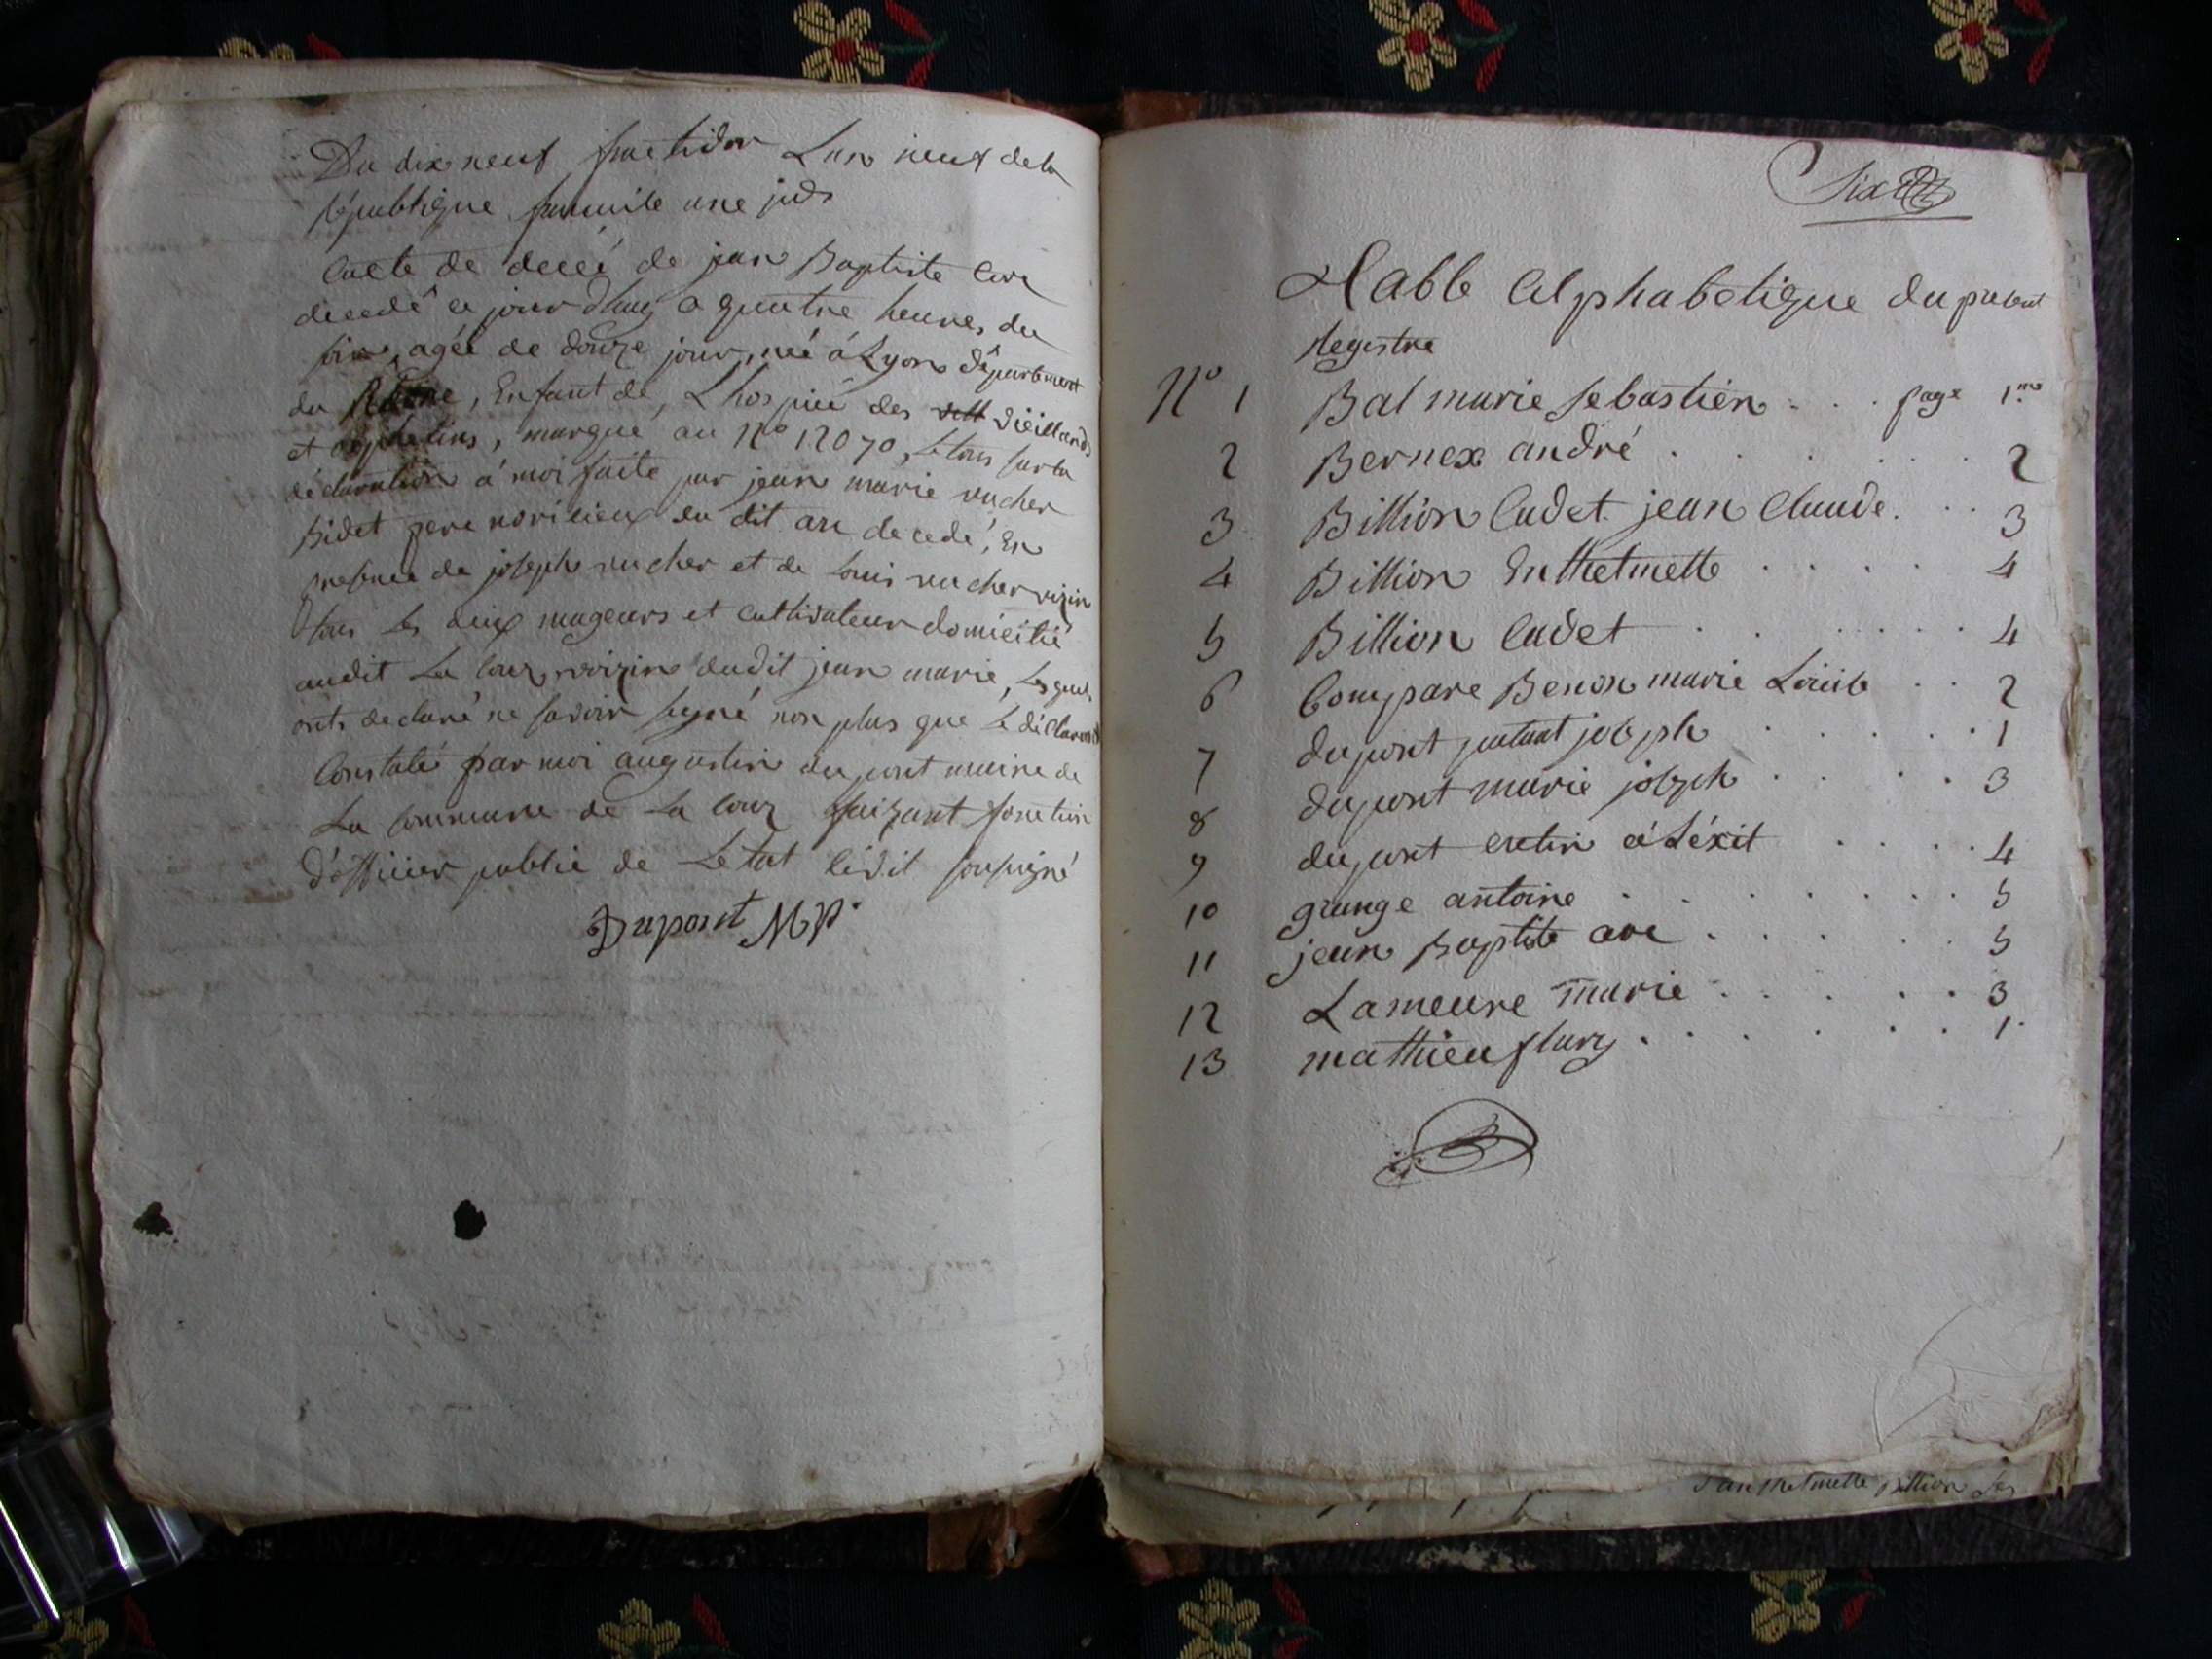 Du dix neuf fructidor Lan neuf dela
République francaise une
Lacte de decéi de jean Baptiste
decedé ce jour dhuy a quatre heures du
soir, agée de douze jour, née á Lyon département
du Rhone, Enfant de, Lhospice des vieillards
et orphelins, marqué au N° 12070, Le tous sur la
déclaration á moi faite par jean marie vucher
Bidet pere noricieux du dit are decedé, En
presence de joseph vucher et de Louis vucher voizin
tous les deux mageurs et cultivateur domicilié
audit La Cour, voizin dudit jean marie, Lesquels
onts declaré ne savoir signé non plus que Le déclarant
Constaté par moi augustin dupont maire de
La Commune de La Cour faizant fonction
d'officier public de Letat Civil soussigné
Dupont M
Six
Table Alphabetique du present
Registre
N° 1 Bal marie Sebastien . . . page 1.re
2 Bernex andré . . . . . . 2
3 Billion Cadet jean Claude . . . 3
4 Billion . . . . 4
5 Billion Cadet . . . . . . 4
6 Compare Benon marie Loüise . . 2
7 dupont joseph . . . . . 1
8 dupont marie joseph . . . . 3
9 dupont . . . . 4
10 grange antoine . . . . . . . 5
11 jean Baptiste are . . . . . 5
12 Lameure marie . . . . . 3
13 mathieu flury . . . . . . 1
Billion